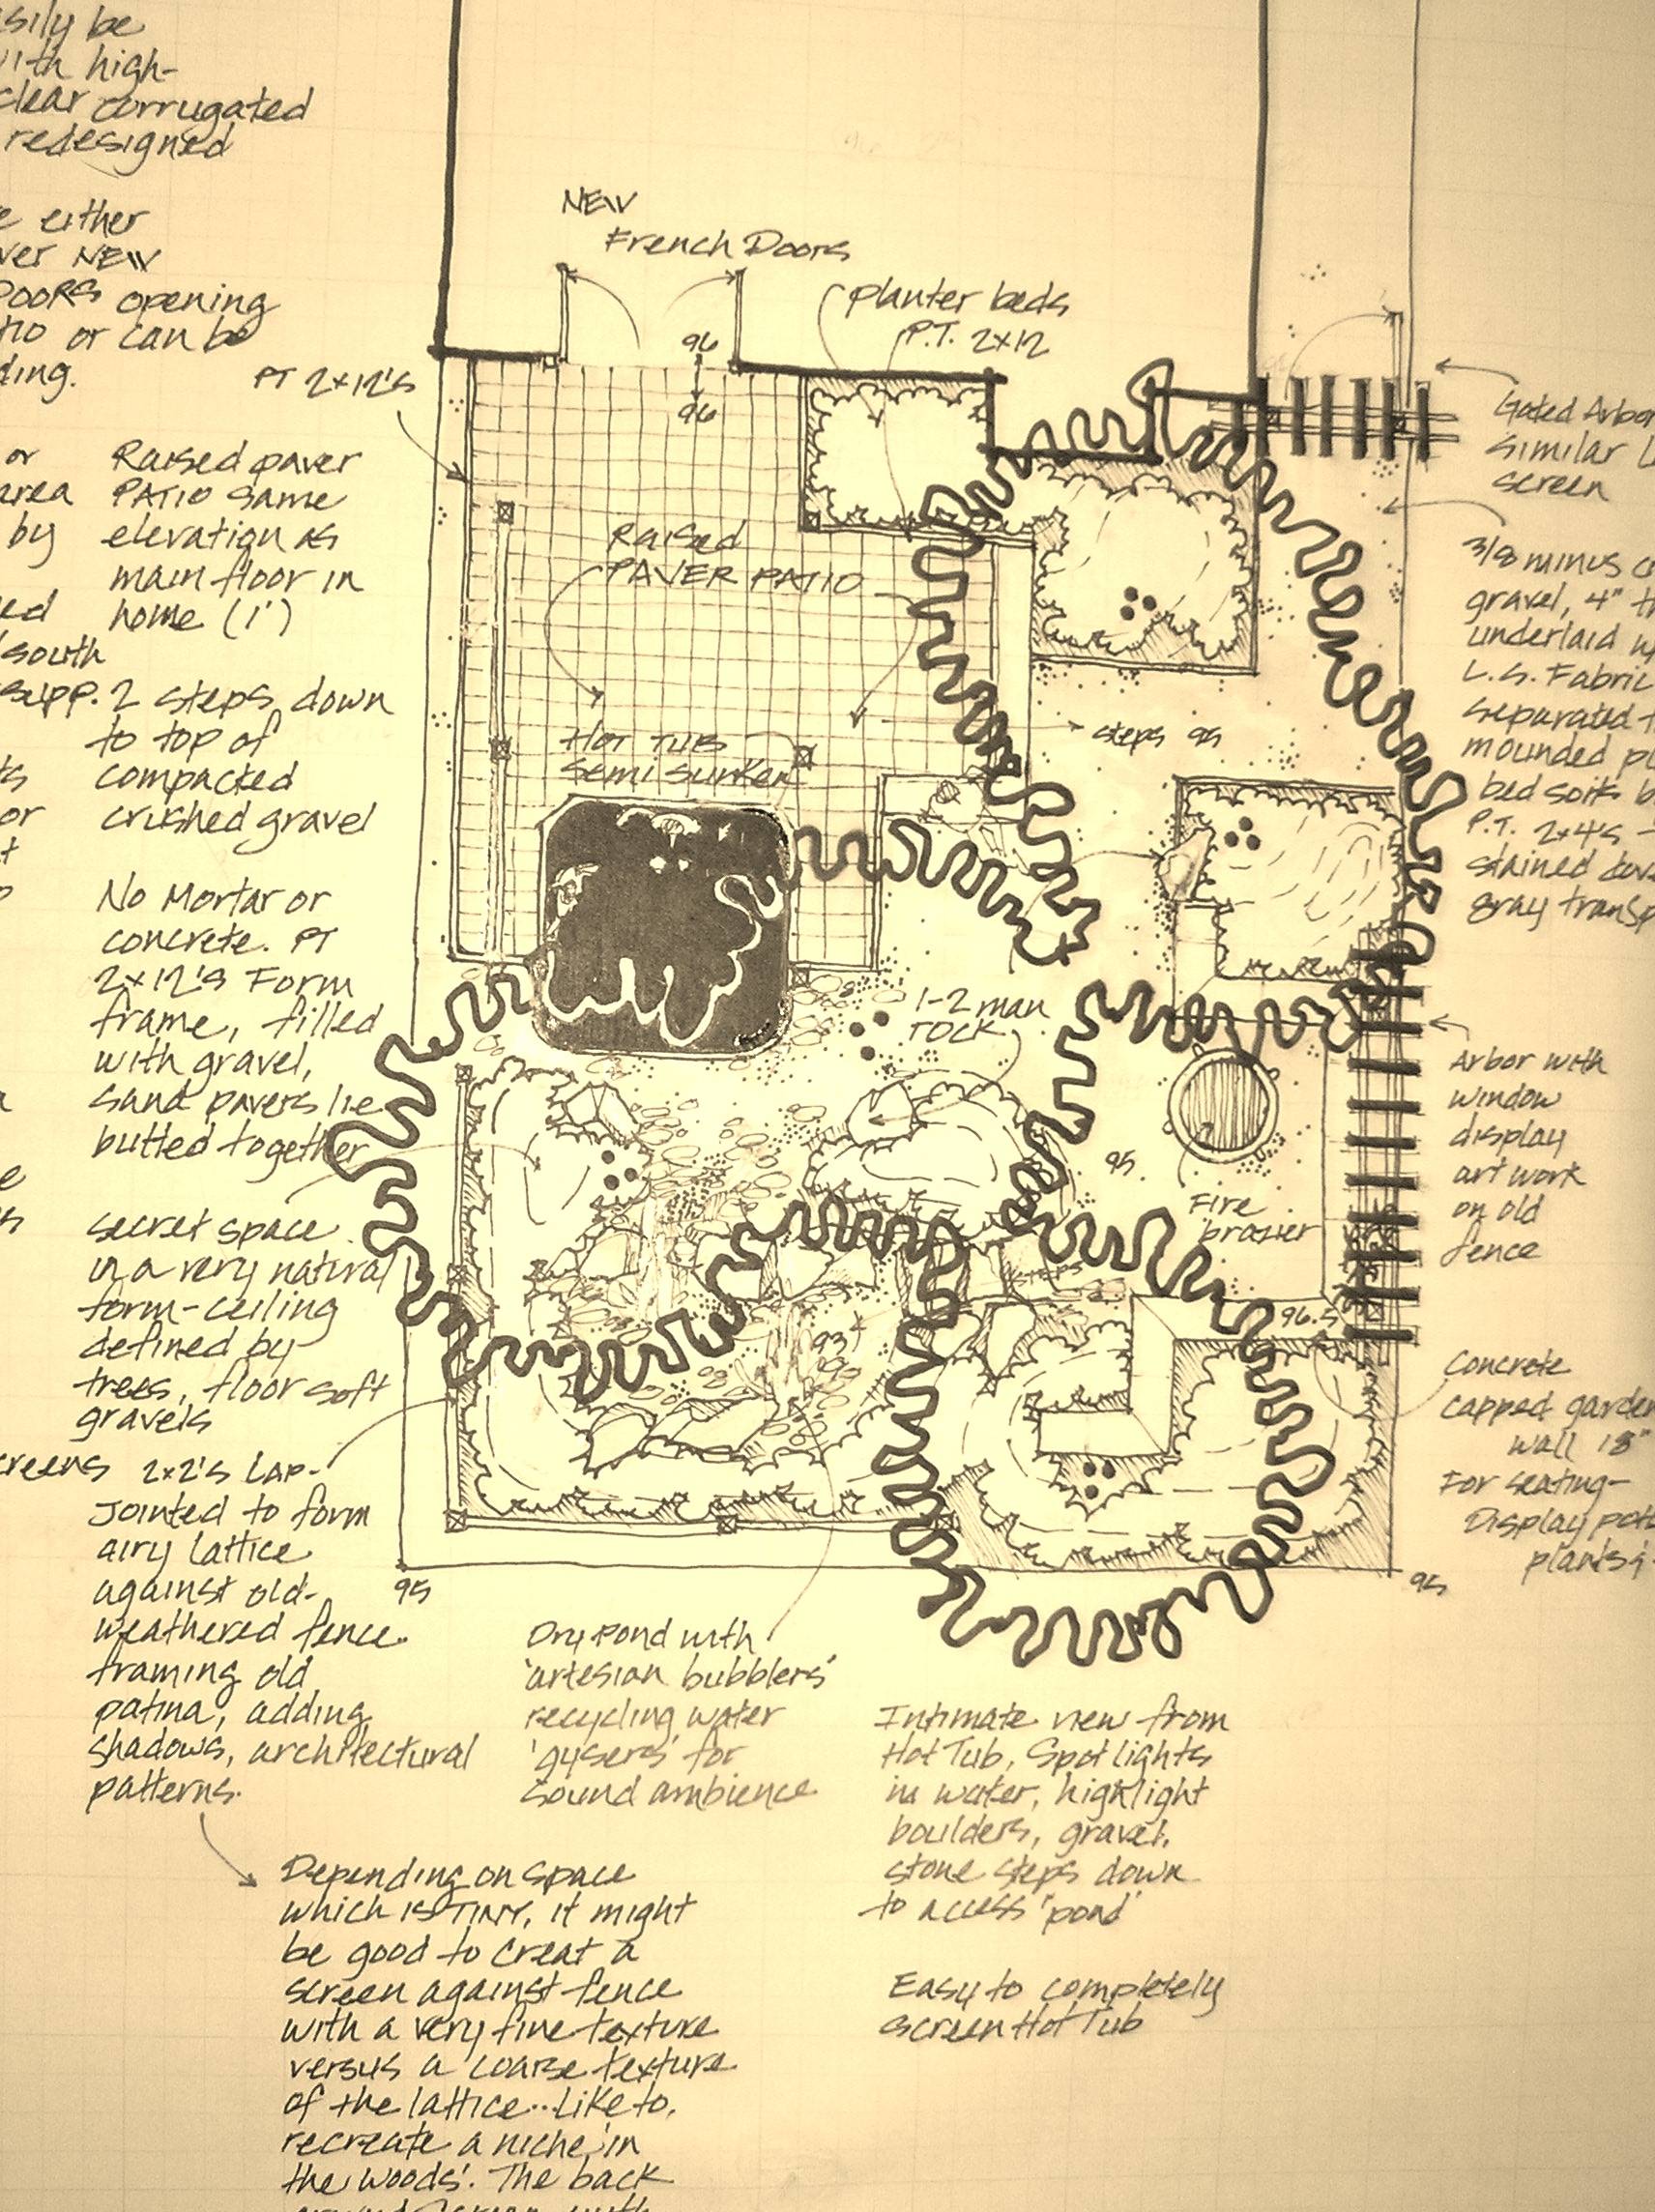 sily be
with high-
clear corrugated
redesigned
e either
ver NEW
DOORS opening
tio or can be
ding.
PT 2x12's
NEW
French Doors
planter beds
P.T. 2x12
96
96
or
area
by
ed
south
supp.
Raised paver
PATIO same
elevation as
main floor in
home (1')
2 steps down
to top of
compacted
crushed gravel
No Mortar or
concrete. PT
2x12's Form
frame, filled
with gravel,
sand pavers lie
butted together
secret space
in a very natural
form-ceiling
defined by
trees, floor soft
gravels
creens 2x2's Lap-
Jointed to form
airy lattice
against old-
weathered fence
framing old
patina, adding
shadows, architectural
patterns.
Raised
PAVER PATIO
HOT TUB
semi sunken
steps 95
1-2 man
rock
95
Fire
brazier
steps
93
96.5
95
95
Gated Arbor
similar L
screen
3/8 minus c
gravel, 4" th
underlaid w
L.S. Fabric
separated f
mounded pl
bed soils b
P.T. 2x4's
stained
gray transp
Arbor with
window
display
art work
on old
fence
Concrete
capped garden
wall 18"
For seating-
Display pott
plants &
Dry pond with
'artesian bubblers'
recycling water
'gysers' for
sound ambience
Intimate view from
Hot Tub, Spotlights
in water, highlight
boulders, gravel,
stone steps down
to access 'pond'
Easy to completely
screen Hot Tub
Depending on space
which is TINY, it might
be good to creat a
screen against fence
with a very fine texture
versus a coarse texture
of the lattice...Like to,
recreate a niche 'in
the woods'. The back